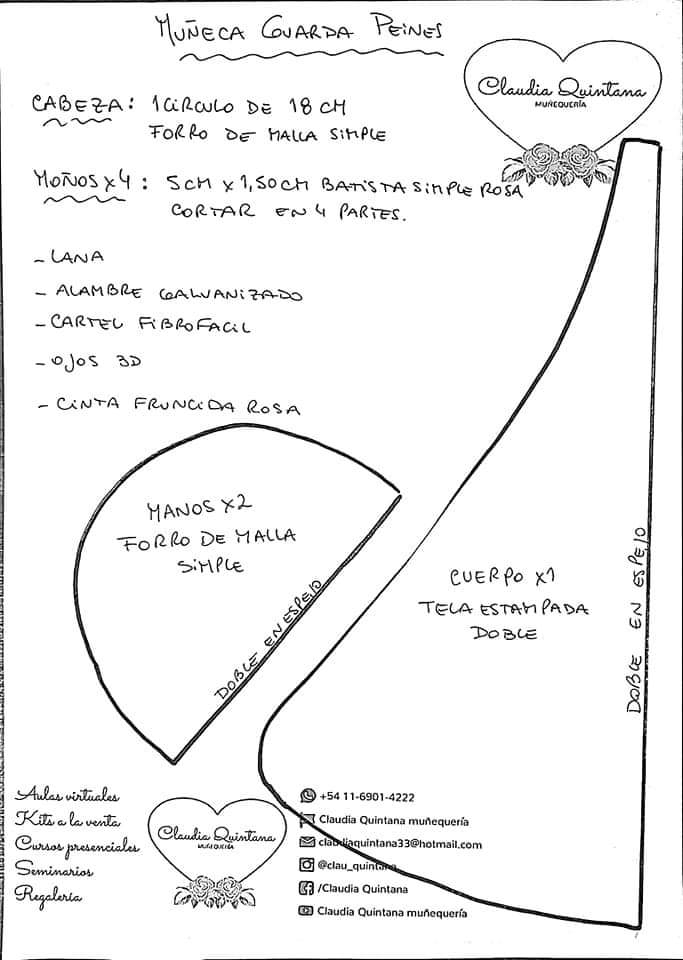 MUÑECA GUARDA PEINES
Claudia Quintana
MUÑEQUERÍA
CABEZA: 1 CIRCULO DE 18 CM
FORRO DE MALLA SIMPLE
MOÑOS x4: 5CM x 1,50CM BATISTA SIMPLE ROSA
CORTAR EN 4 PARTES.
- LANA
- ALAMBRE GALVANIZADO
- CARTEL FIBROFACIL
- OJOS 3D
- CINTA FRUNCIDA ROSA
MANOS x2
FORRO DE MALLA
SIMPLE
DOBLE EN ESPEJO
CUERPO x1
TELA ESTAMPADA
DOBLE
DOBLE EN ESPEJO
Aulas virtuales
Kits a la venta
Cursos presenciales
Seminarios
Regalería
Claudia Quintana
MUÑEQUERÍA
+54 11-6901-4222
Claudia Quintana muñequería
claudiaquintana33@hotmail.com
@clau_quintana
/Claudia Quintana
Claudia Quintana muñequería